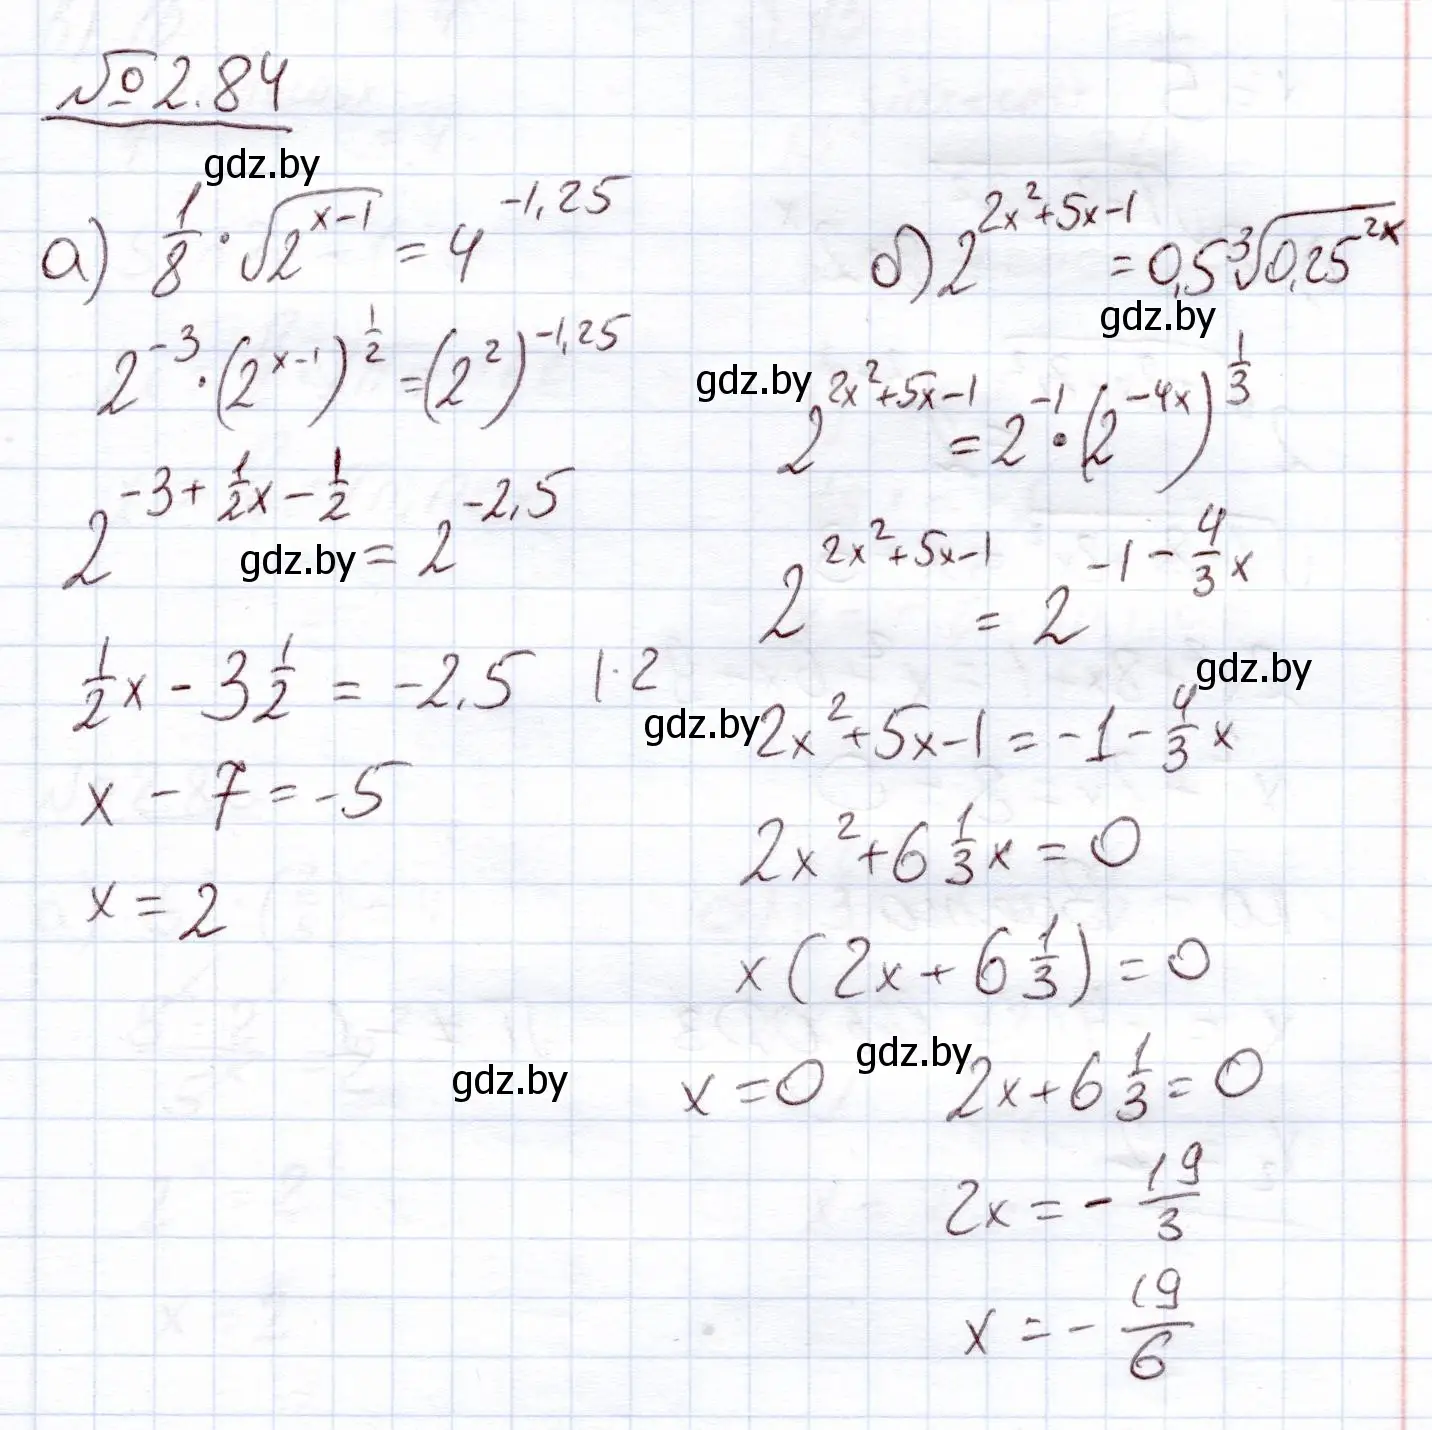 № 2.84
gdz.by
а) 1/8 · √(2^(x-1)) = 4^(-1,25)
2^(-3) · (2^(x-1))^(1/2) = (2^2)^(-1,25)
2^(-3+1/2x-1/2) = 2^(-2,5)
gdz.by
1/2x - 3 1/2 = -2,5 |·2
x - 7 = -5
x = 2
gdz.by
б) 2^(2x^2+5x-1) = 0,5 ∛(0,25^(2x))
gdz.by
gdz.by
2^(2x^2+5x-1) = 2^(-1) · (2^(-4x))^(1/3)
2^(2x^2+5x-1) = 2^(-1-4/3x)
gdz.by
gdz.by
2x^2+5x-1 = -1-4/3x
2x^2+6 1/3x = 0
x(2x+6 1/3) = 0
gdz.by
x = 0 2x+6 1/3 = 0
2x = -19/3
x = -19/6